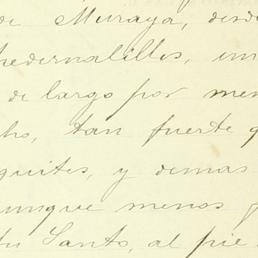 de Muraya, desde
pedernalillos, un
de largo por men
ho, tan fuerte q
quites, y demas
unque menos g
tu Santo, al pie